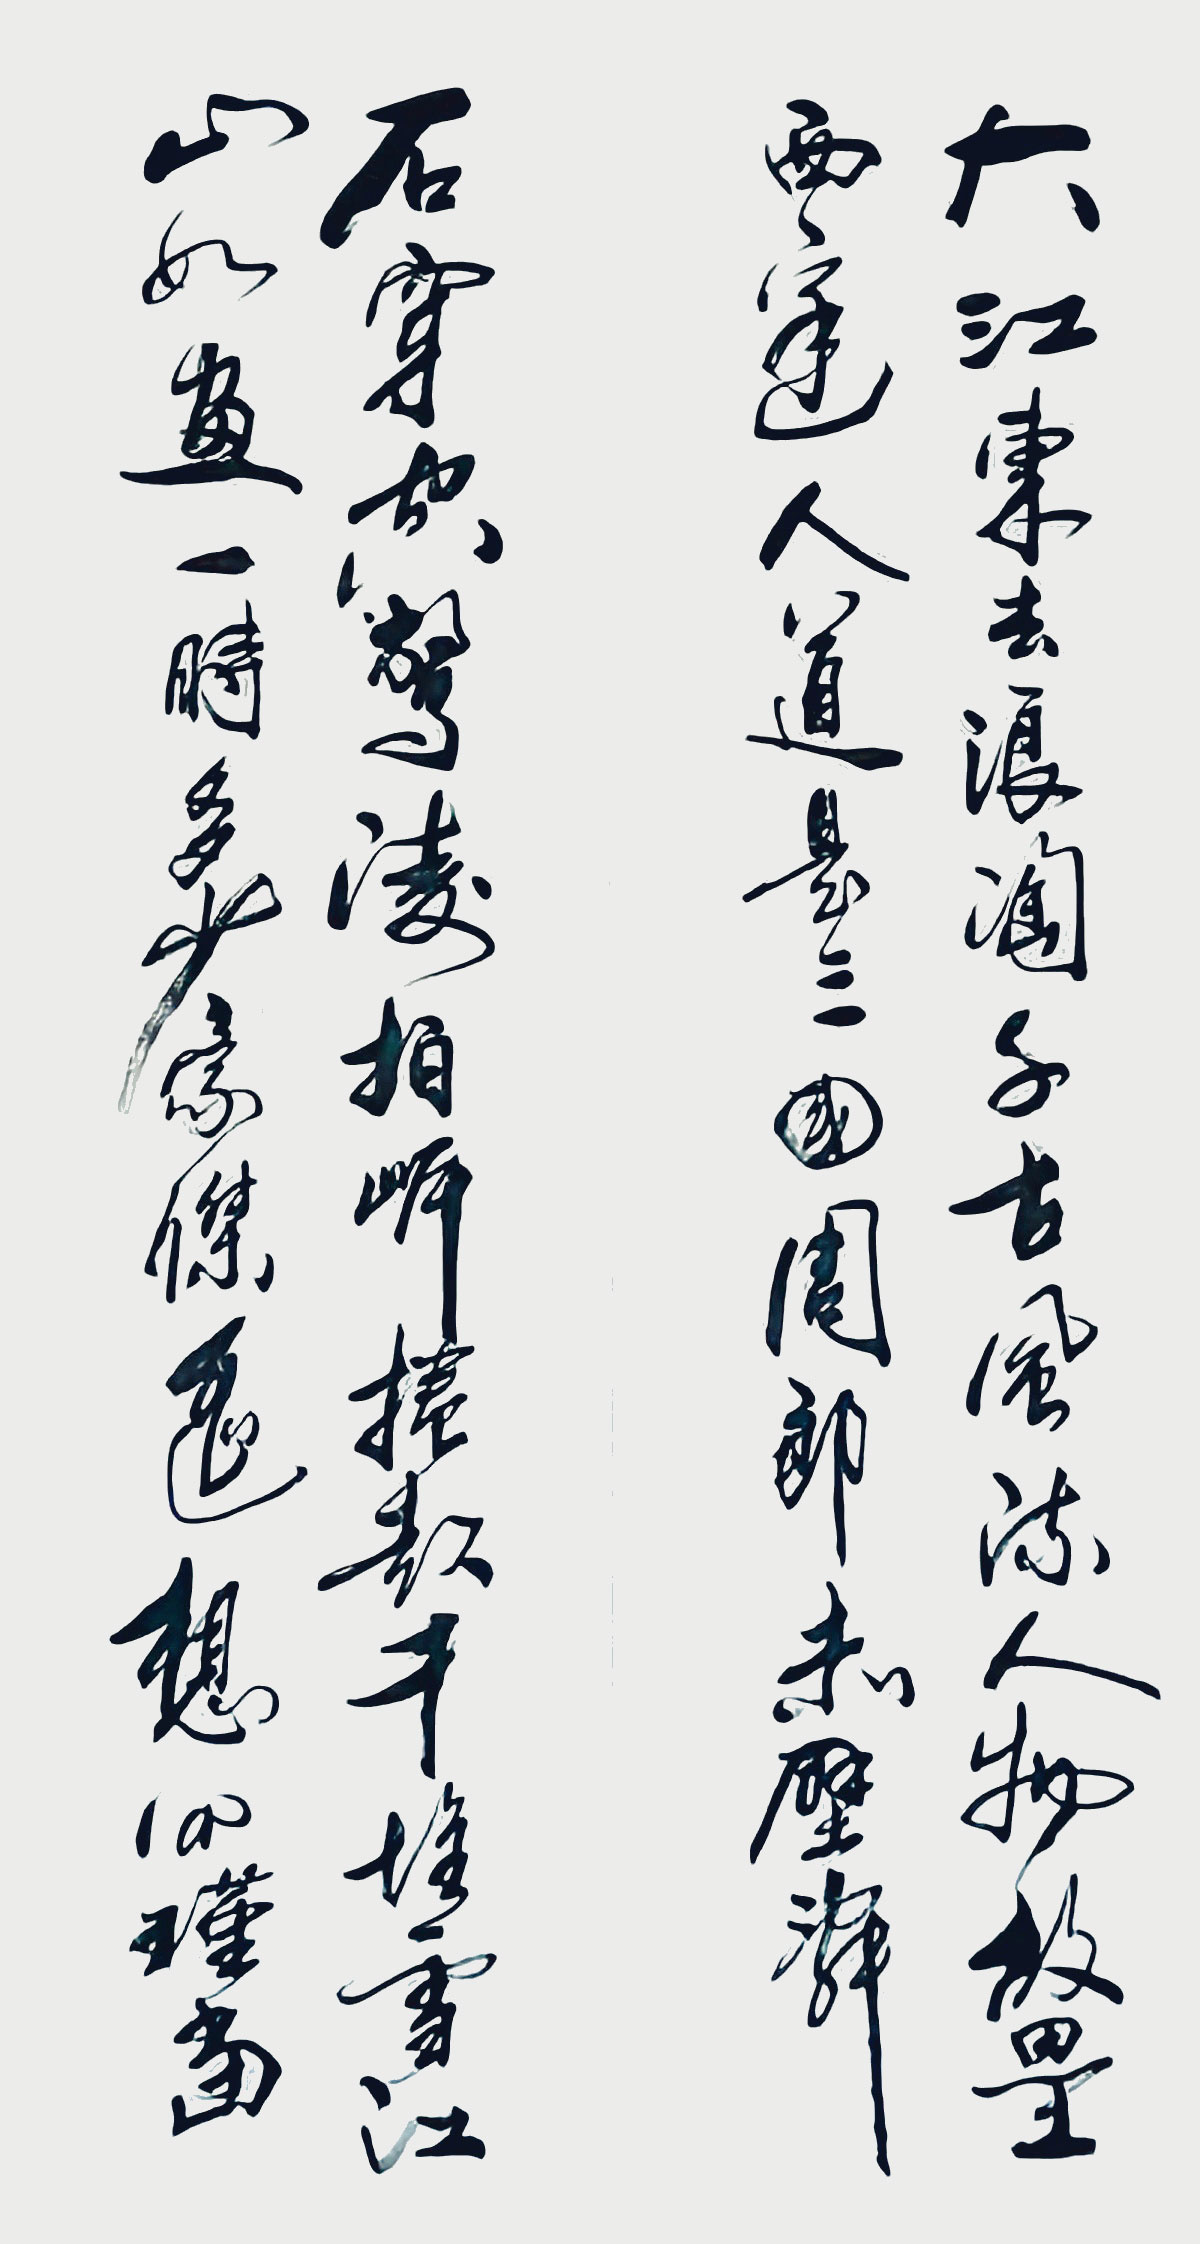 大江東去浪淘千古風流人物故壘
西邊人道是三國周郎赤壁亂
石穿空驚濤拍岸捲起千堆雪江
山如畫一時多少豪傑遙想公瑾當